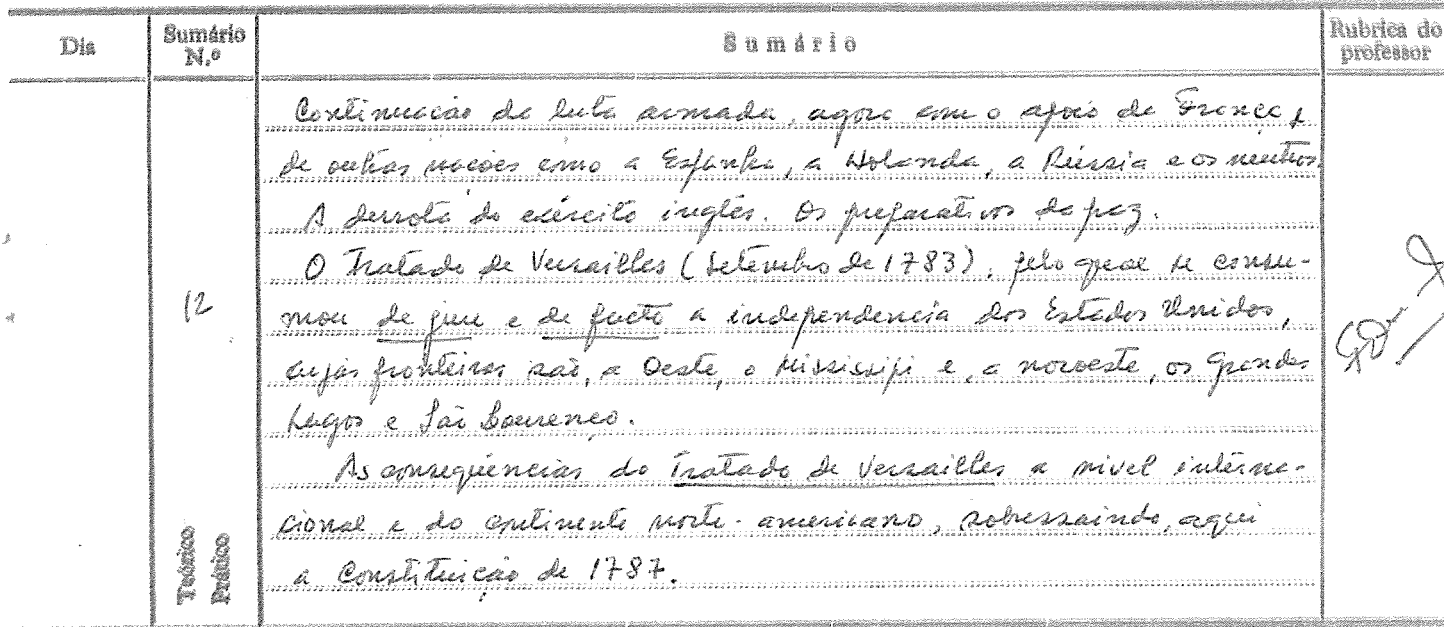 Dia
Sumário N.º
Sumário
Rubrica do professor
Continuação da luta armada, agora com o apoio da França,
de outras nações como a Espanha, a Holanda, a Rússia e os neutros.
A derrota do exército inglês. Os preparativos da paz.
O Tratado de Versailles (Setembro de 1783), pelo qual se consu-
12
mou de jure e de facto a independencia dos Estados Unidos,
cujas fronteiras são, a Oeste, o Mississipi e, a noroeste, os Grandes
Lagos e São Lourenço.
As consequências do Tratado de Versailles a nível interna-
cional e do continente norte-americano, sobressaindo, aqui
a Constituição de 1787.
Teórico
Prático